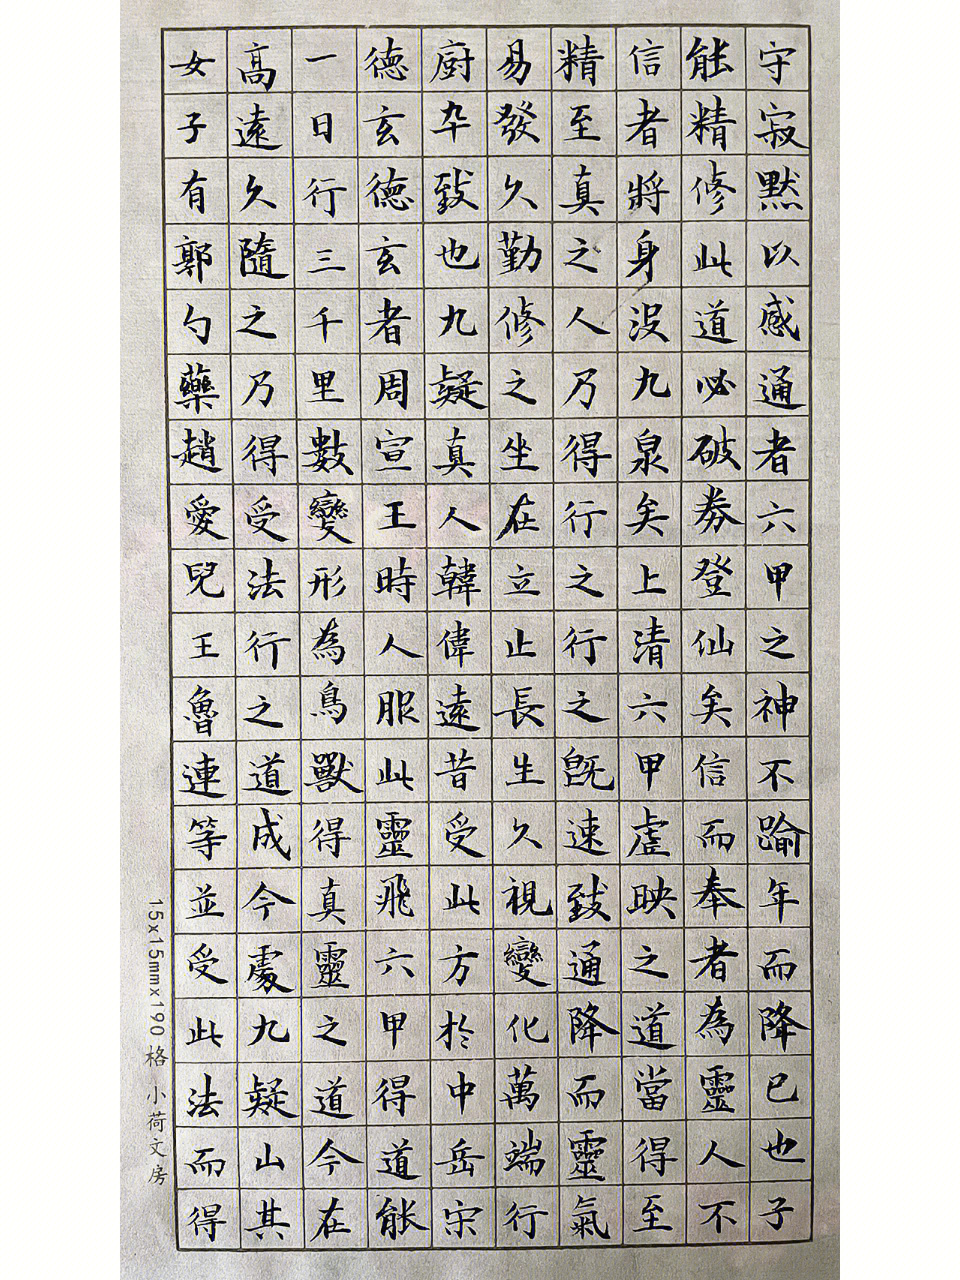 守寂默以感通者六甲之神不踰年而降已也子
能精修此道必破券登仙矣信而奉者為靈人不
信者將身没九泉矣上清六甲虛映之道當得至
精至真之人乃得行之行之既速致通降而靈氣
易發久勤修之坐在立止長生久視變化萬端行
廚卒致也九疑真人韓偉遠昔受此方於中岳宋
德玄德玄者周宣王時人服此靈飛六甲得道能
一日行三千里數變形為鳥獸得真靈之道今在
高遠久隨之乃得受法行之道成今處九疑山其
女子有郭勺藥趙愛兒王魯連等並受此法而得
15x15mmx190 格 小荷文房